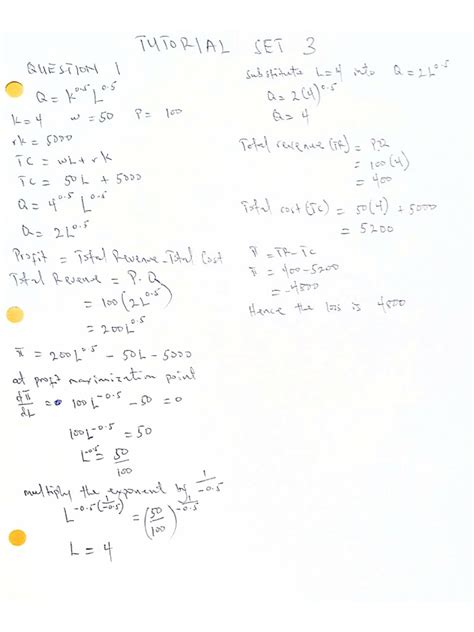 TUTORIAL SET 3
QUESTION 1
Q = K^0.5 L^0.5
K=4 w=50 P= 100
rk = 5000
TC = wL + rK
TC = 50L + 5000
Q = 4^0.5 L^0.5
Q = 2L^0.5
Profit = Total Revenue - Total Cost
Total Revenue = P.Q
= 100(2L^0.5)
= 200L^0.5
π = 200L^0.5 - 50L - 5000
at profit maximization point
dπ/dL = 100L^-0.5 - 50 = 0
100L^-0.5 = 50
L^-0.5 = 50/100
multiply the exponent by 1/-0.5
L^-0.5(1/-0.5) = (50/100)^1/-0.5
L = 4
substitute L=4 into Q = 2L^0.5
Q = 2(4)^0.5
Q = 4
Total revenue (TR) = P.Q
= 100(4)
= 400
Total cost (TC) = 50(4) + 5000
= 5200
π = TR - TC
π = 400 - 5200
= -4800
Hence the loss is 4800